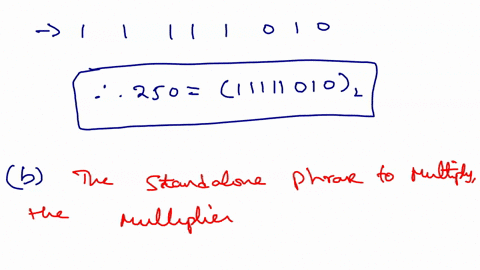 → 1 1 1 1 1 0 1 0
∴ 250 = (11111010)₂
(b) The standalone phrase to multiply,
the multiplier